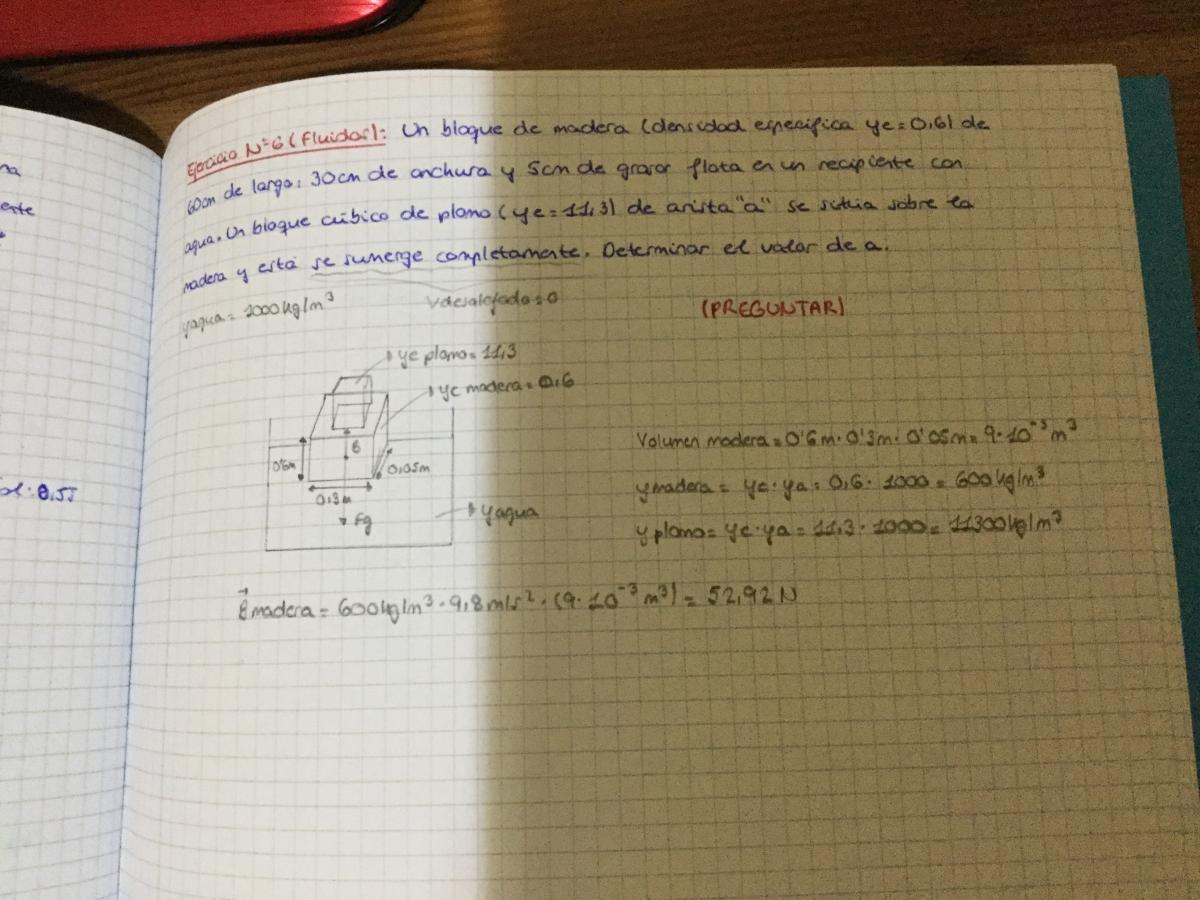 na
ente
Ejercicio Nº6 (Fluidos): Un bloque de madera (densidad especifica γe=0,6) de
60cm de largo, 30cm de anchura y 5cm de grosor flota en un recipiente con
agua. Un bloque cúbico de plomo (γe=11,3) de arista "a" se situa sobre la
madera y está se sumerge completamente. Determinar el valor de a.
γagua = 1000 kg/m³ Vdesalojado=0 (PREGUNTAR)
γe plomo = 11,3
γe madera = 0,6
0'6m
0,05m
0,3m
Fg
γagua
Volumen madera = 0'6m·0'3m·0'05m = 9·10⁻³ m³
γmadera = γe·γa = 0,6·1000 = 600 kg/m³
γplomo = γe·γa = 11,3·1000 = 11300 kg/m³
madera = 600 kg/m³·9,8 m/s²·(9·10⁻³ m³) = 52,92 N